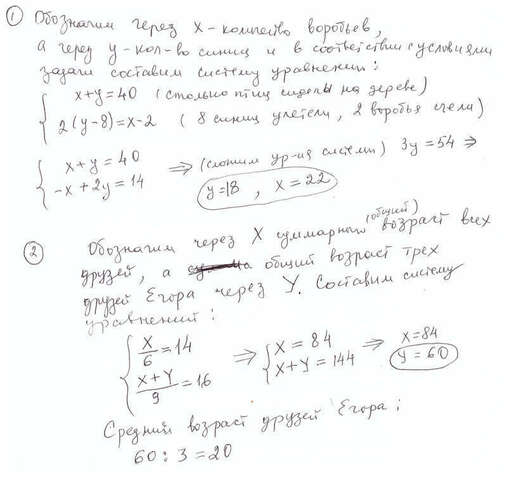 ① Обозначим через X - количество воробьев,
а через y - кол-во синиц и в соответствии с условиями
задачи составим систему уравнений:
x+y=40 (столько птиц сидело на дереве)
2(y-8)=x-2 ( 8 синиц улетели, 2 воробья
x+y=40
-x+2y=14
⇒ (сложим ур-ия системы) 3y=54 ⇒
y=18, x=22
② Обозначим через X суммарный (общий) возраст всех
друзей, а общий возраст трех
друзей Егора через Y. Составим систему
уравнений:
X/6=14
X+Y/9=16
⇒ X=84
X+Y=144
⇒ X=84
Y=60
Средний возраст друзей Егора:
60:3=20